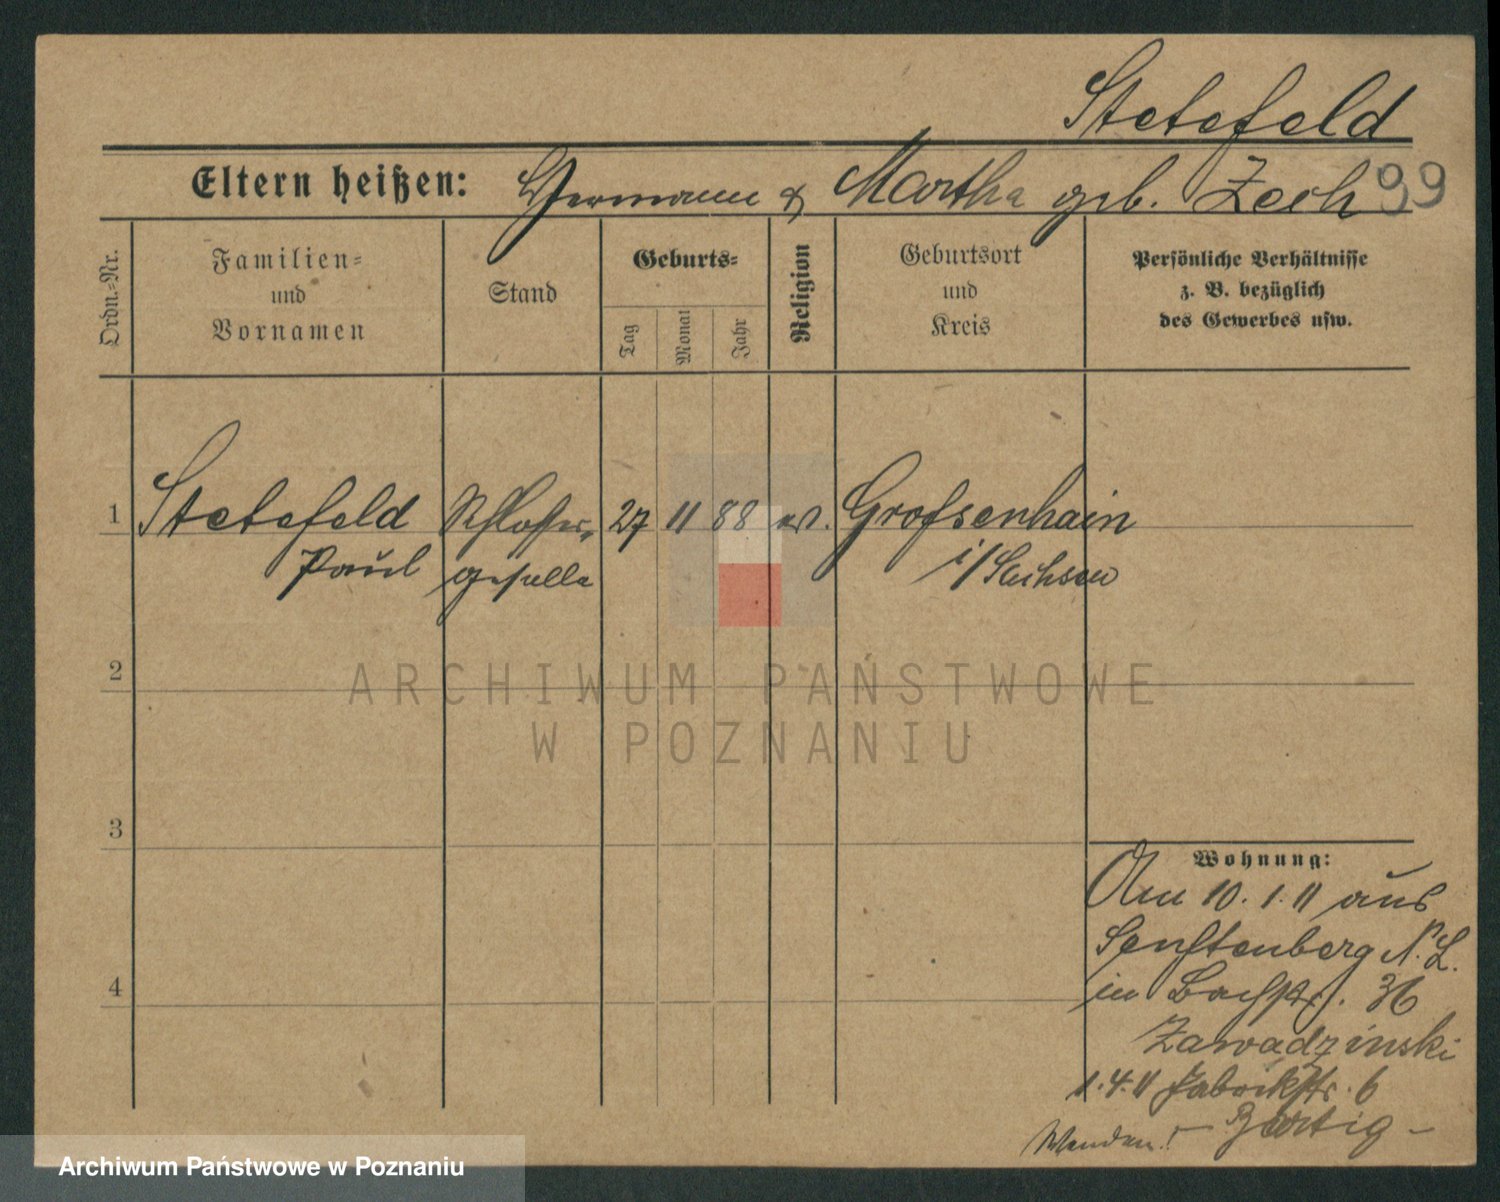 Stetefeld
Eltern heißen: Hermann & Martha geb. Zech 99
Ordn.-Nr.
Familien-
und
Vornamen
Stand
Geburts-
Tag
Monat
Jahr
Religion
Geburtsort
und
Kreis
Persönliche Verhältnisse
z. B. bezüglich
des Gewerbes usw.
1 Stetefeld Schlosser- 27 11 88 ev. Grofsenhain
Paul geselle i/Sachsen
2
ARCHIWUM PAŃSTWOWE
W POZNANIU
3
4
Wohnung:
Am 10.1.11 aus
Senftenberg N.L.
in Bachstr. 36
Zawadzinski
1.4.11 Fabrikstr. 6
Wenden! - Hartig -
Archiwum Państwowe w Poznaniu